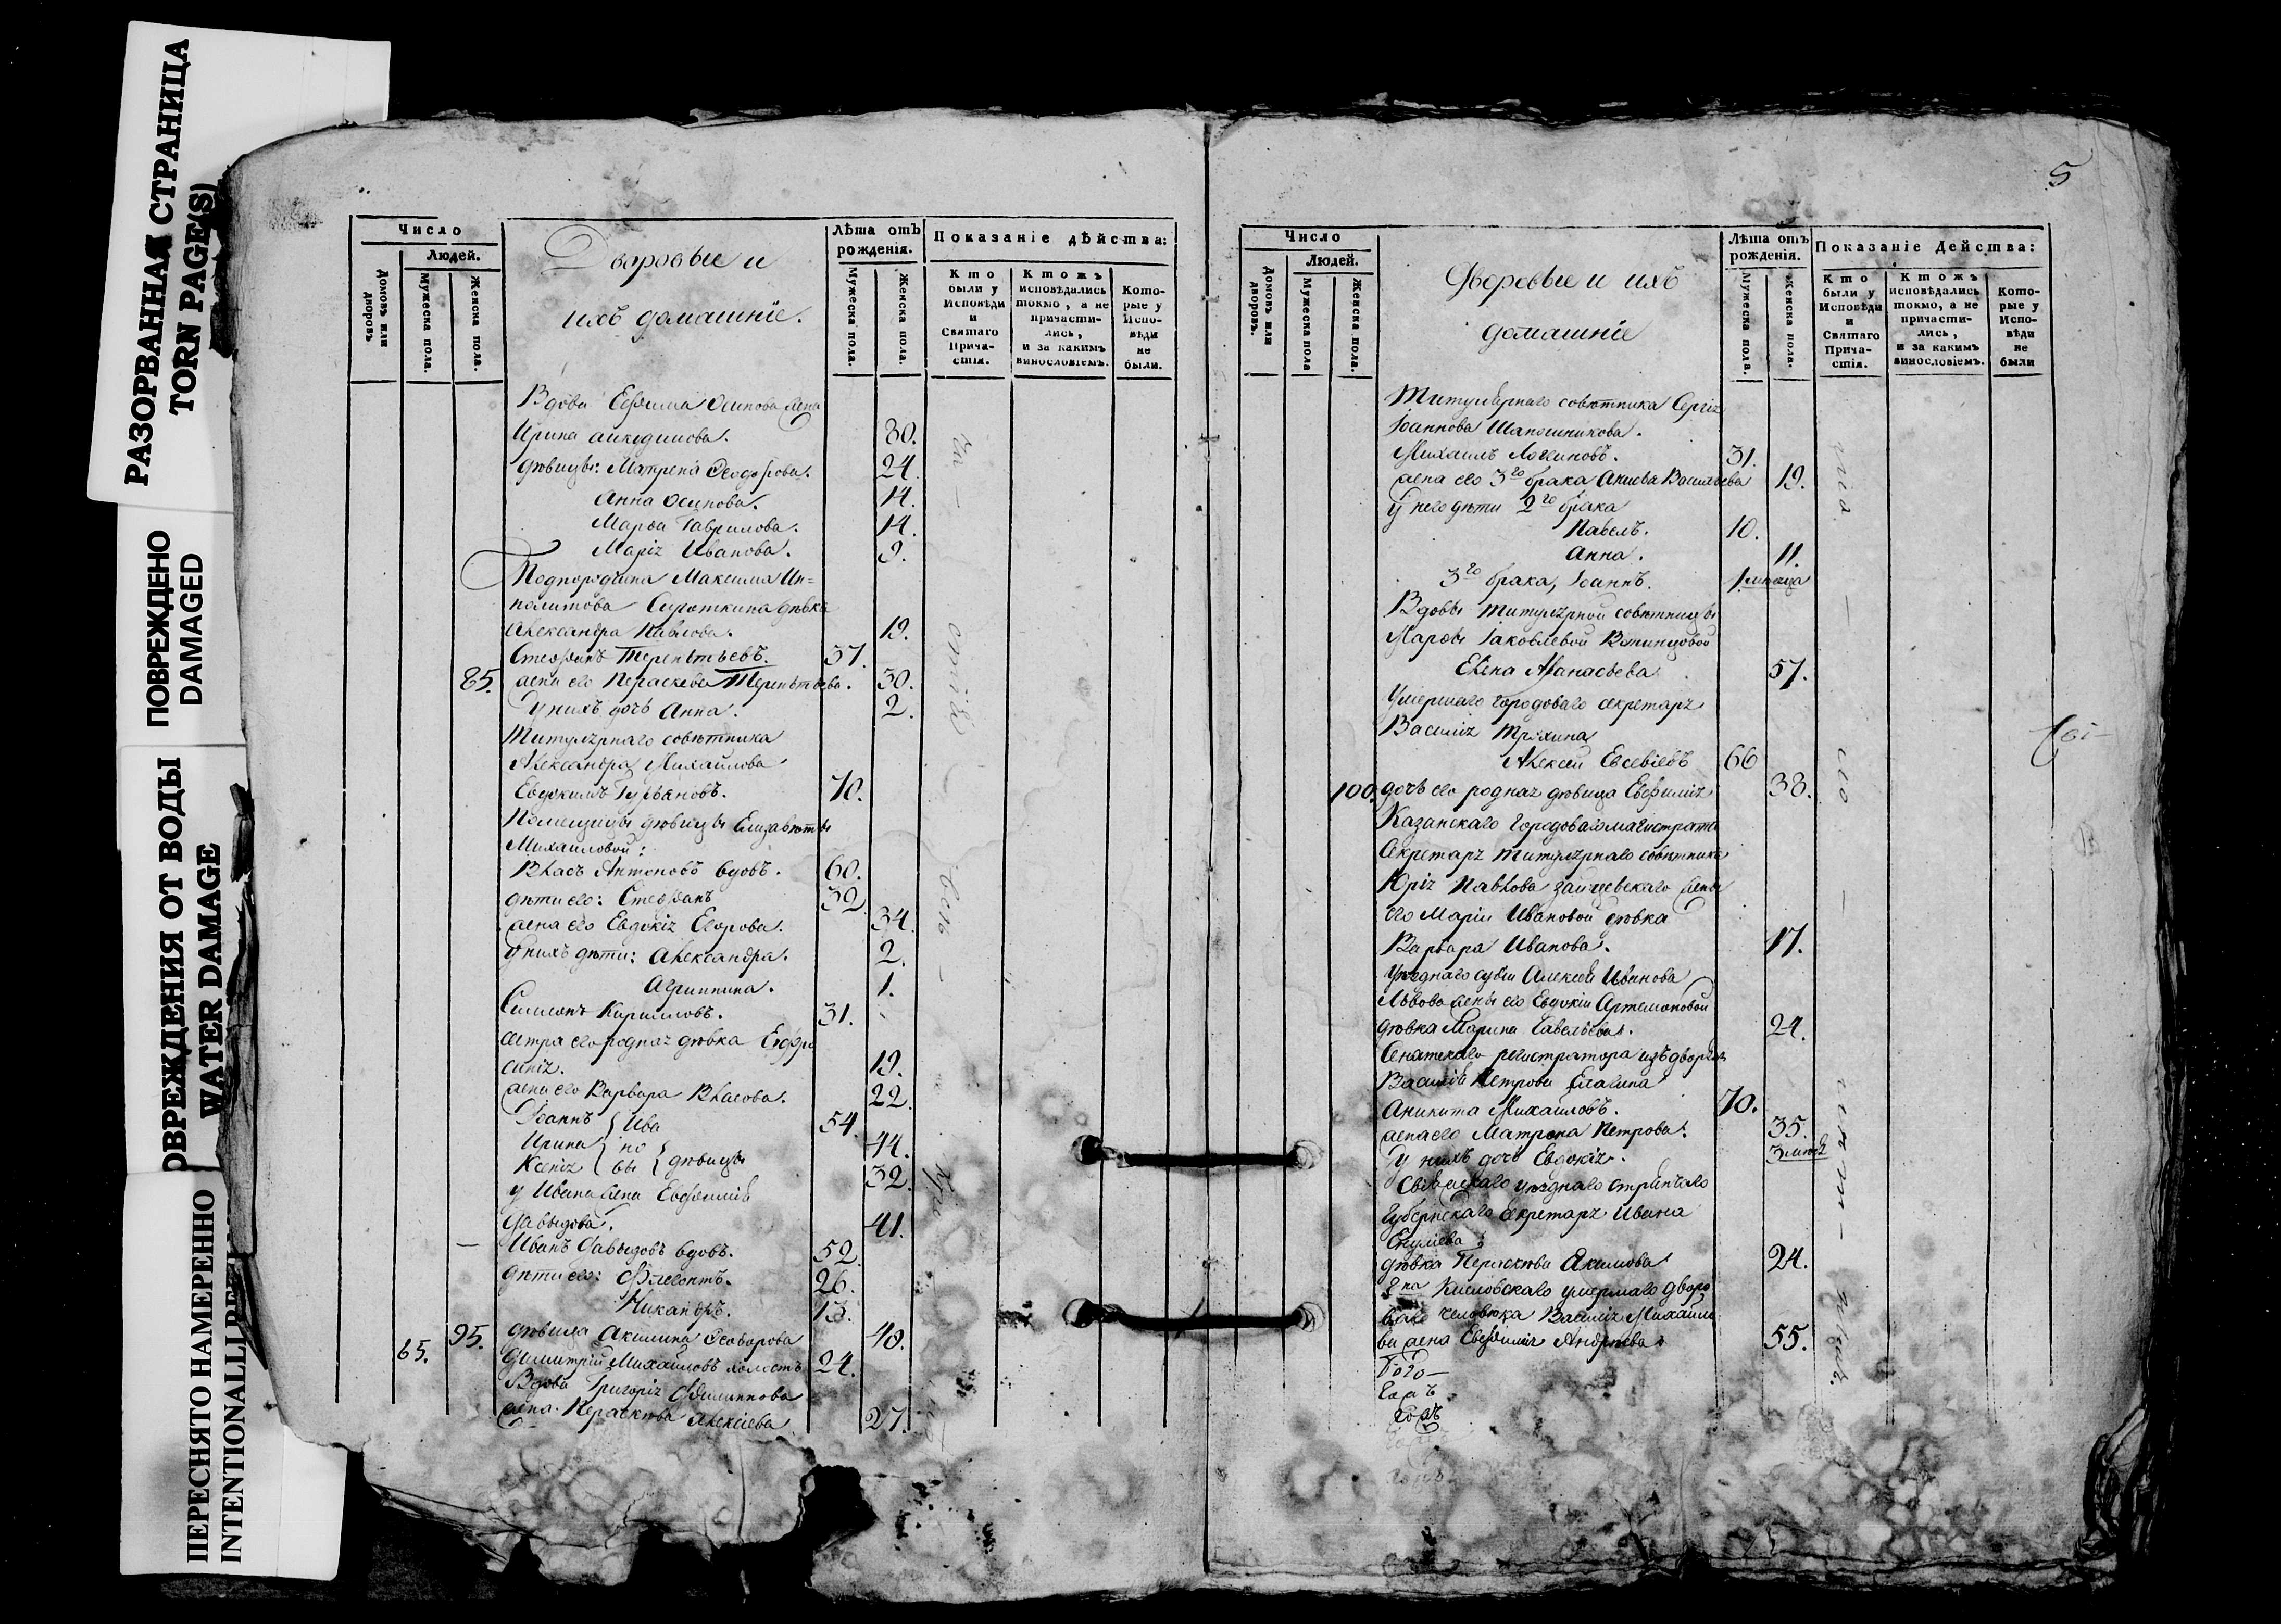 РАЗОРВАННАЯ СТРАНИЦА
TORN PAGE(S)
ПОВРЕЖДЕНО
DAMAGED
ОВРЕЖДЕНИЯ ОТ ВОДЫ
WATER DAMAGE
ПЕРЕСНЯТО НАМЕРЕННО
INTENTIONAL
Число
Людей.
Домовъ или дворовъ
Мужеска пола.
Женска пола.
Дворовые и
ихъ домашніе.
Лѣта отъ рожденія.
Мужеска пола.
Женска пола.
Показаніе дѣйства:
Кто были у Исповѣди и Святаго Прича-стія.
Ктожъ исповѣдались токмо, а не причасти-лись, и за какимъ винословіемъ.
Кото-рые у Испо-вѣди не были.
Вдова Осипова жена
Ирина 30.
дѣвицы: Матрена Ѳеодорова. 24
Анна Осипова. 14.
Марѳа Гаврилова. 14.
Марія Иванова. 9.
Подпоручика Максима Ип=
политова Сироткина дѣвка
Александра Павлова. 19.
Стефанъ Терентьевъ. 37.
85. жена его Параскева Терентьева. 30.
У нихъ дочь Анна. 2.
Титулярнаго совѣтника
Александра Михайлова
Евдокимъ Гурьяновъ. 70.
Помещицы дѣвицы Елизаветы
Михайловой:
Власъ Антоновъ вдовъ. 60.
дѣти его: Стефанъ 32
жена его Евдокія Егорова. 34.
У нихъ дѣти: Александра. 2.
Агриппина. 1.
Симеонъ Кириловъ. 31.
сестра его родная дѣвка Евфро
синія. 19.
жена его Варвара Власова. 22.
Іоаннъ Ива 54.
Ирина но 44.
Ксенія вы дѣвицы 32.
у Ивана жена Евфимія
Давыдова. 41.
Иванъ Давыдовъ вдовъ. 52
дѣти его: Флегонтъ. 26.
Никандръ. 13.
95. дѣвица Акилина Ѳеодорова 40.
65. Димитрій Михайловъ холостъ 24.
Вдова Григорія Филиппова
жена Параскева Алексіева 27.
5
Число
Людей.
Домовъ или дворовъ.
Мужеска пола
Женска пола.
Дворовые и ихъ
домашніе
Лѣта отъ рожденія.
Мужеска пола.
Женска пола.
Показаніе Действа:
Кто были у Исповѣди и Святаго Прича-стія.
Ктожъ исповѣдались токмо, а не причасти-лись, и за какимъ винословіемъ.
Кото-рые у Испо-вѣди не были
Титулярнаго совѣтника Сергія
Іоаннова Шапошникова.
Михаилъ Логиновъ. 31.
жена его 3го брака Васильева 19.
У него дѣти 2го брака
Павелъ. 10.
Анна. 11.
3го брака, Іоаннъ. 1 месяца
Вдовы титулярной совѣтницы
Марѳы Іаковлевой
Елена Аѳанасьева 57.
Умершаго городоваго секретаря
Василія
Алексей Евсевіевъ 66
100. дочь его родная дѣвица Евфимія 38.
Казанскаго городоваго магистрата
секретаря титулярнаго совѣтника
Юрія Павлова Зайцевскаго жены
его Маріи Ивановой дѣвка
Варвара Иванова. 17.
Уѣзднаго судьи Алексея Иванова
Львова жены его Евдокіи Артемоновой
дѣвка Марина Савельева. 24.
Сенатскаго регистратора изъ дворян
Василія Петрова Елагина
Аникита Михайловъ. 70.
жена его Матрона Петрова. 35.
У нихъ дочь Евдокія. 3
Свіяжскаго уѣзднаго стряпчаго
Губернскаго секретаря Ивана
дѣвка Параскева Акимова 24.
Кисловскаго умершаго дворо
ваго человѣка Василія Михайло
ва жена Евфимія Андреева 55.
Бого-